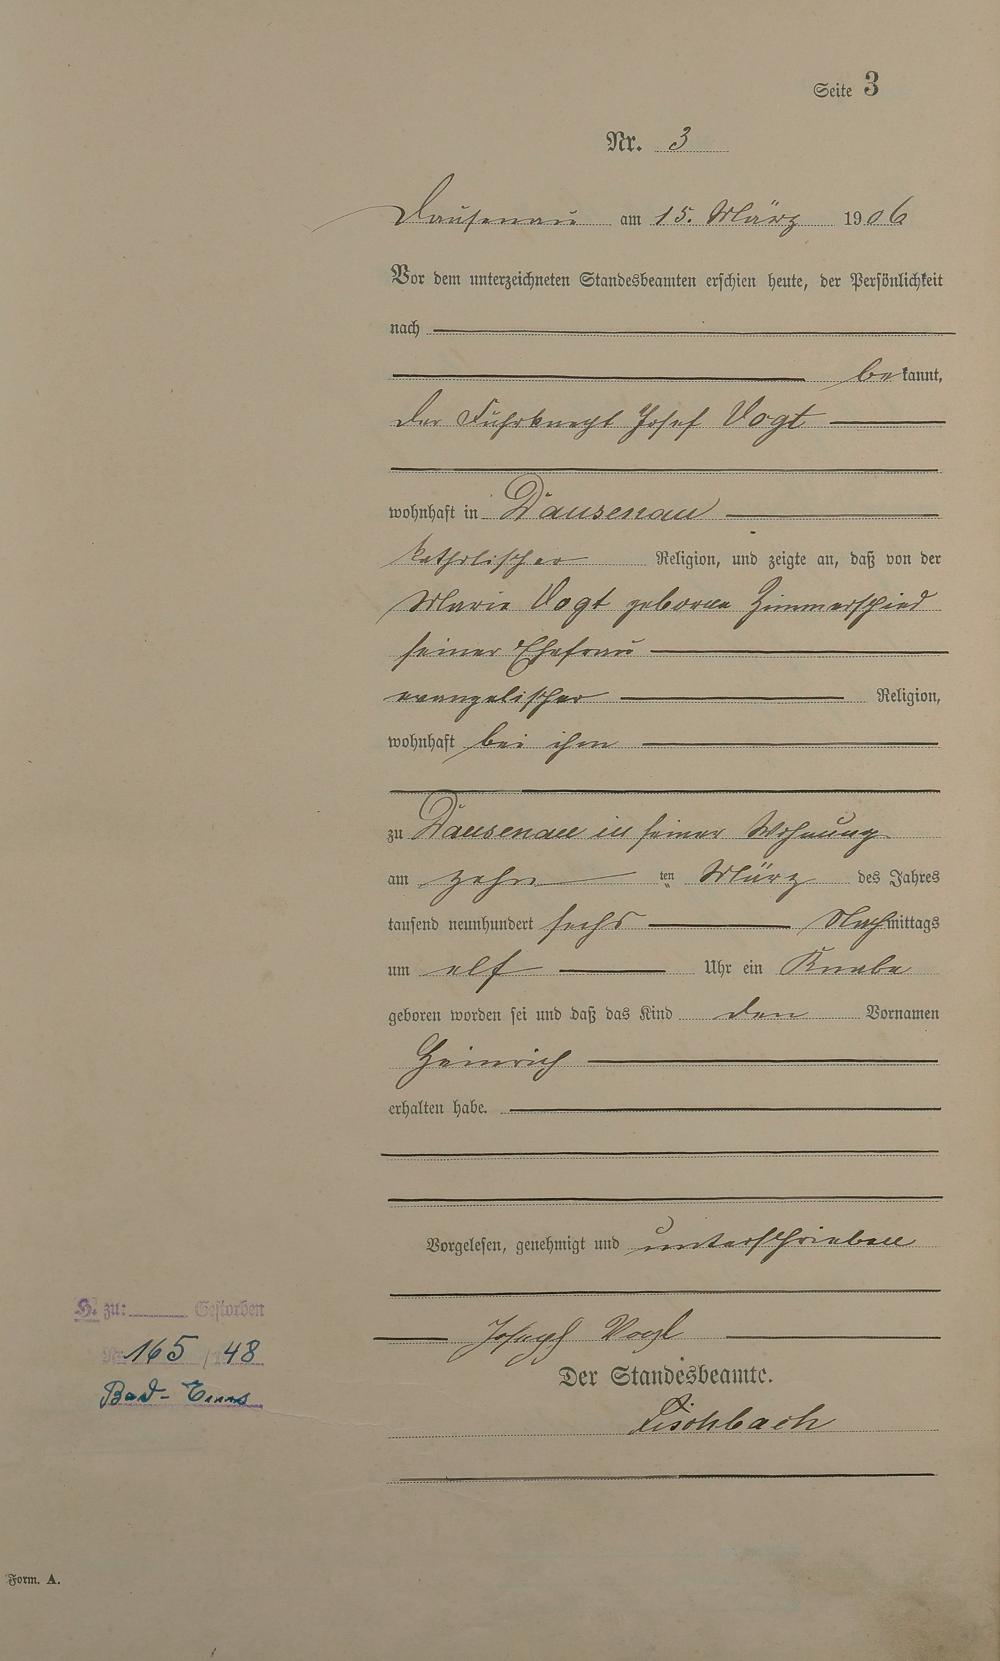 Seite 3
Nr. 3
Dausenau am 15. März 1906
Vor dem unterzeichneten Standesbeamten erschien heute, der Persönlichkeit
nach
bekannt,
der Fuhrknecht Josef Vogt
wohnhaft in Dausenau
katholischer Religion, und zeigte an, daß von der
Marie Vogt geborne Zimmerschied
seiner Ehefrau
evangelischer Religion,
wohnhaft bei ihm
zu Dausenau in seiner Wohnung
am zehn ten März des Jahres
tausend neunhundert sechs Nachmittags
um elf Uhr ein Knabe
geboren worden sei und daß das Kind den Vornamen
Heinrich
erhalten habe.
Vorgelesen, genehmigt und unterschrieben
Joseph Vogt
Der Standesbeamte.
Fischbach
H. zu: Gestorben
Nr. 165 / 48
Bad-Ems
Form. A.